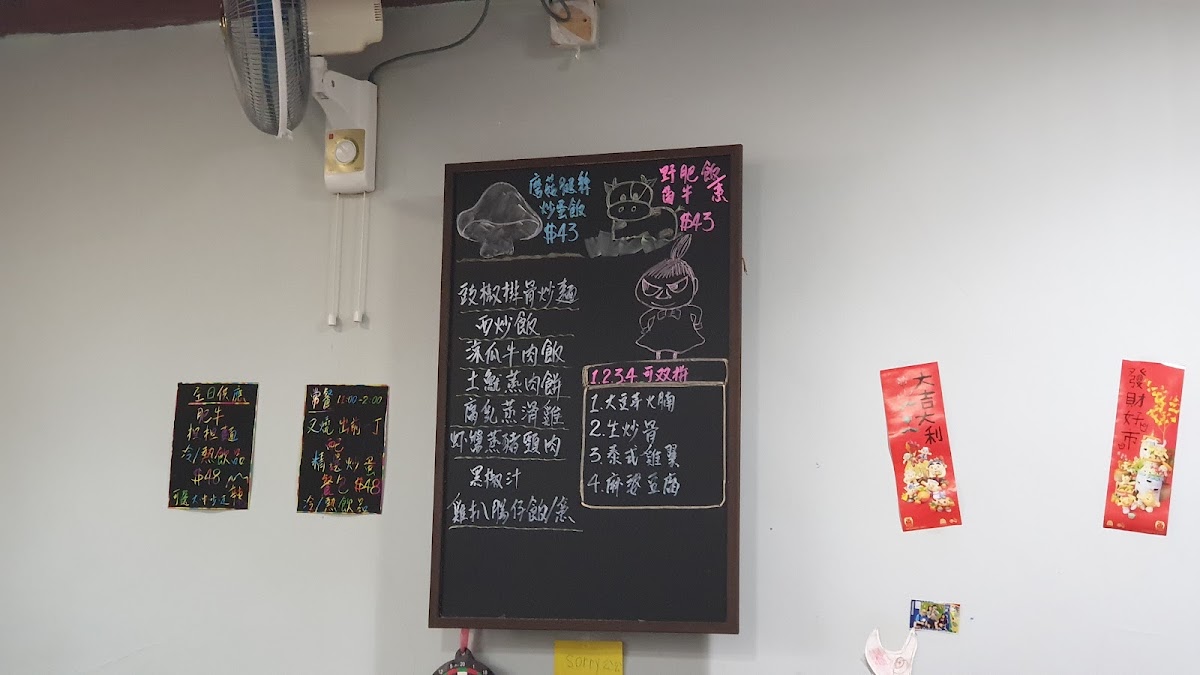 全日供應
肥牛
担担麵
冷/熱飲品
$48
常餐 11:00-2:00
叉燒出前一丁
配
精選炒蛋
餐包 $48
冷/熱飲品
炒蛋飯
$43
野肥飯
菌牛
$43
豉椒排骨炒麵
西炒飯
涼瓜牛肉飯
土魷蒸肉餅
腐乳蒸滑雞
虾醬蒸豬頸肉
黑椒汁
雞扒腸仔飯/意
1.2.3.4.可双拼
1.大豆芽火腩
2.生炒骨
3.泰式雞翼
4.麻婆豆腐
大吉大利
發財好市
sorry